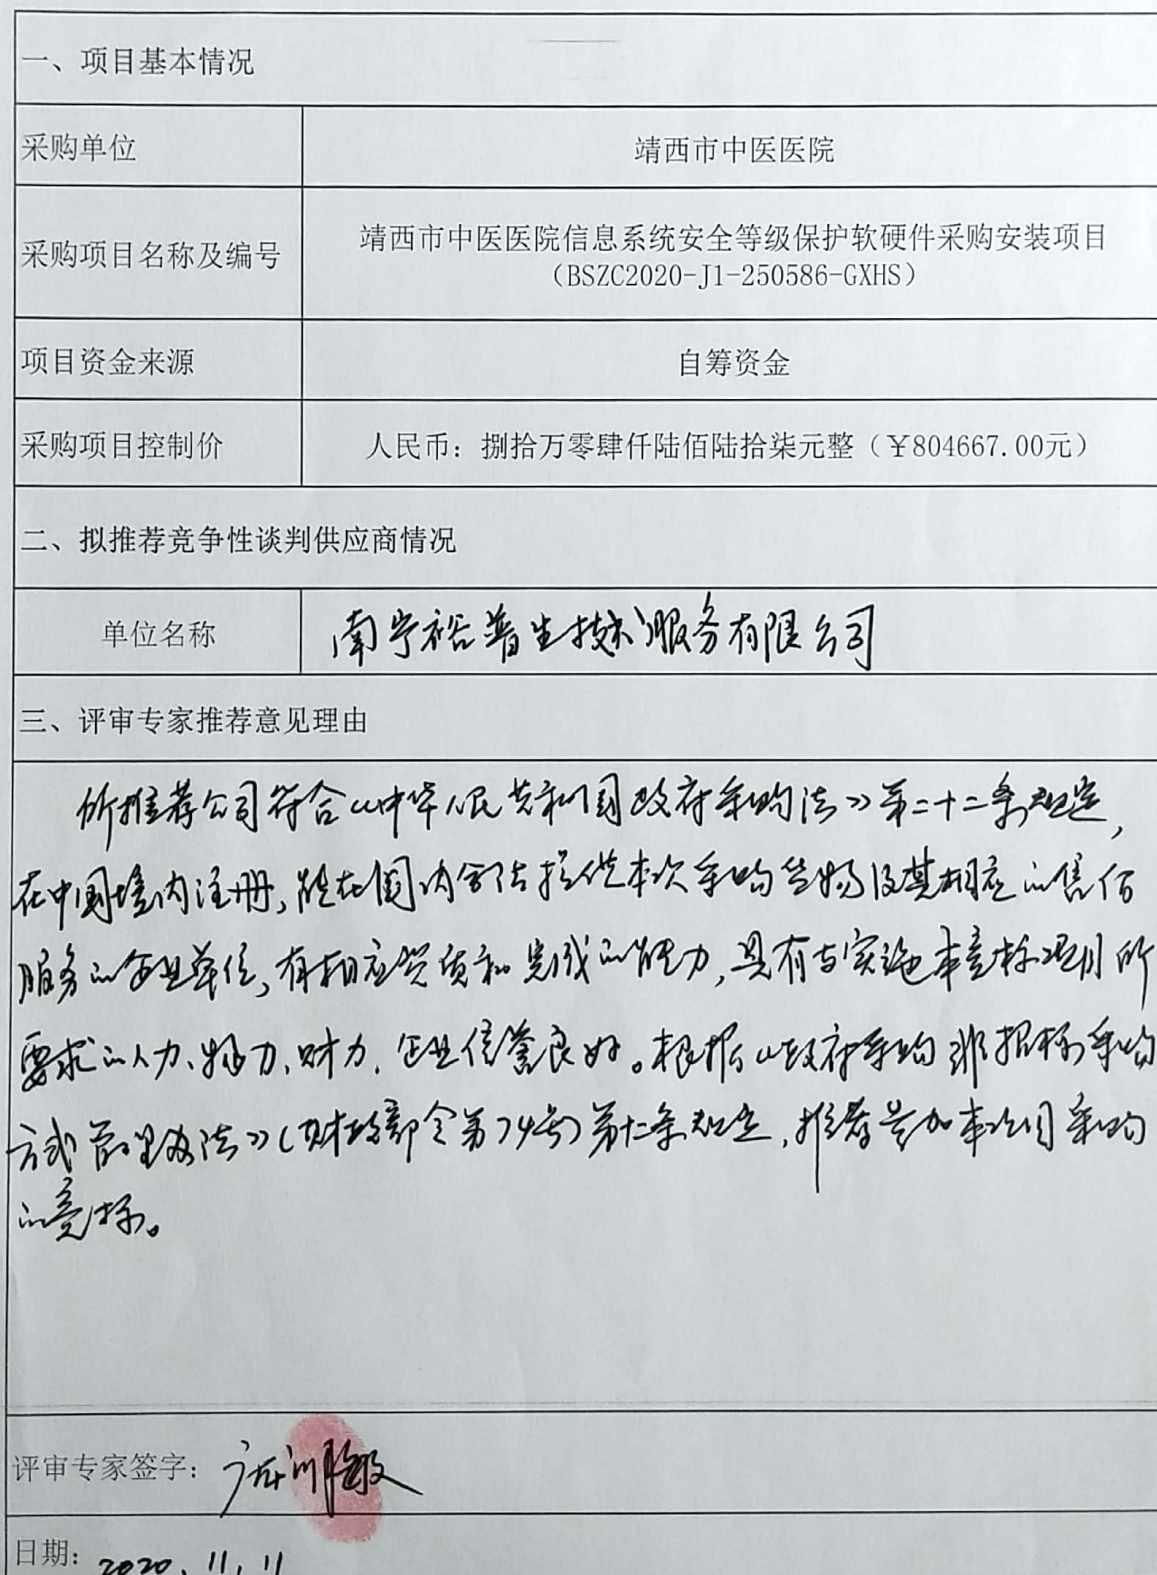 一、项目基本情况
采购单位
靖西市中医医院
采购项目名称及编号
靖西市中医医院信息系统安全等级保护软硬件采购安装项目
（BSZC2020-J1-250586-GXHS）
项目资金来源
自筹资金
采购项目控制价
人民币：捌拾万零肆仟陆佰陆拾柒元整（￥804667.00元）
二、拟推荐竞争性谈判供应商情况
单位名称
南宁裕普生技术服务有限公司
三、评审专家推荐意见理由
所推荐公司符合《中华人民共和国政府采购法》第二十二条规定，
在中国境内注册，能在国内合法提供本次采购货物及其相应的售后
服务的企业单位，有相应资质和完成的能力，具有与实施本竞标项目所
要求的人力、物力、财力，企业信誉良好。根据《政府采购非招标采购
方式管理办法》（财政部令第74号）第十二条规定，推荐参加本次采购
的竞标。
评审专家签字：
日期：2020.11.11